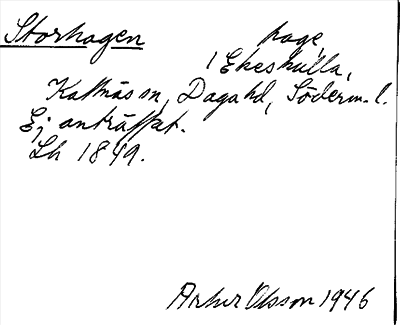 Storhagen hage
i Ekeskulla,
Kattnäs sn, Dagahd, Söderm. l.
Ej anträffat.
Lh 1849.
Artur Olsson 1946